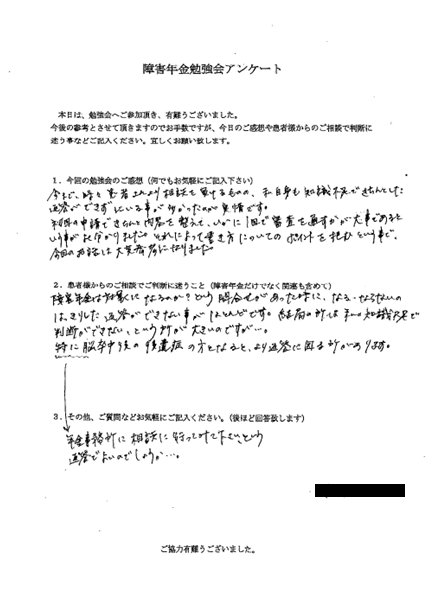 障害年金勉強会アンケート
本日は、勉強会へご参加頂き、有難うございました。
今後の参考とさせて頂きますのでお手数ですが、今日のご感想や患者様からのご相談で判断に
迷う事などご記入下さい。宜しくお願い致します。
1．今回の勉強会のご感想（何でもお気軽にご記入下さい）
今まで、時々患者さんより相談を受けるものの、私自身も知識不足できちんとした
返答ができずにいる事が多かったのが実情です。
初回の申請できちんと内容を整えて、いかに1回で審査を通すかが大事であると
いう事が良く分かりました。それによって書き方についてのポイントを掴むという事で、
今回のお話は大変参考になりました。
2．患者様からのご相談でご判断に迷うこと（障害年金だけでなく関連も含めて）
障害年金は対象になるのか？という問合せがあった時に、なる・ならないの
はっきりした返答ができない事がほとんどです。結局の所は私の知識不足で
判断ができない、という所が大きいのですが…。
特に脳卒中後の後遺症の方となると、より返答に困る所があります。
3．その他、ご質問などお気軽にご記入ください。（後ほど回答致します）
年金事務所に相談に行ってみて下さいという
返答でよいのでしょうか…。
ご協力有難うございました。